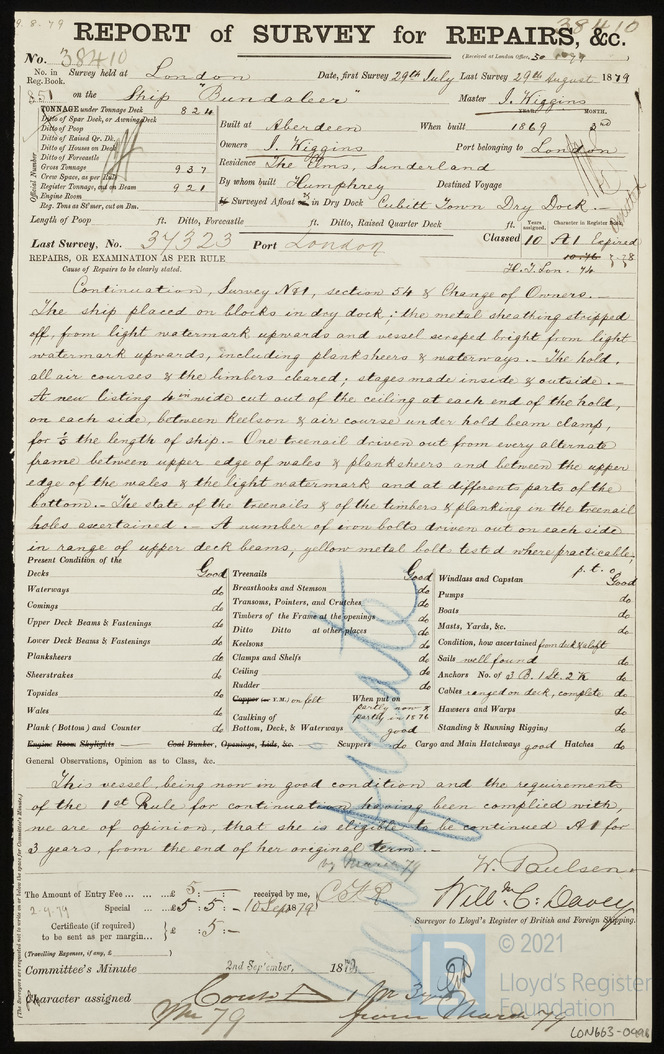 9.8.79
38410
REPORT of SURVEY for REPAIRS, &c.
No. 38410
(Received at London Office, 30
No. in Reg. Book. Survey held at London Date, first Survey 29th July Last Survey 29th August 1879
851 on the Ship "Bundaleer" Master J. Wiggins
TONNAGE under Tonnage Deck 824
Ditto of Spar Deck, or Awning Deck
Ditto of Poop
Ditto of Raised Qr. Dk.
Ditto of Houses on Deck
Ditto of Forecastle
Gross Tonnage 937
Crew Space, as per Rule
Register Tonnage, cut on Beam 921
Engine Room
Reg. Tons as St'mer, cut on Bm.
Official Number
YEAR. MONTH.
Built at Aberdeen When built 1869 3rd
Owners J. Wiggins Port belonging to London
Residence The Elms, Sunderland
By whom built Humphrey Destined Voyage
If Surveyed Afloat or in Dry Dock Cubitt Town Dry Dock.
Length of Poop ft. Ditto, Forecastle ft. Ditto, Raised Quarter Deck ft.
Years assigned. Character in Register Book.
Last Survey, No. 37323 Port London Classed 10 A1 Expired
10.76 3.78
REPAIRS, OR EXAMINATION AS PER RULE
H.T. Lon. 74
Cause of Repairs to be clearly stated.
Continuation, Survey No 1, section 54 & Change of Owners.—
The ship placed on blocks in dry dock; the metal sheathing stripped
off, from light watermark upwards and vessel scraped bright from light
watermark upwards, including planksheers & waterways.— The hold,
all air courses & the limbers cleared; stages made inside & outside.—
A new listing 4in wide cut out of the ceiling at each end of the hold,
on each side, between keelson & air course under hold beam clamp,
for ⅗ the length of ship.— One treenail driven out from every alternate
frame between upper edge of wales & planksheers and between the upper
edge of the wales & the light watermark and at differents parts of the
bottom.— The state of the treenails & of the timbers & planking in the treenail
holes ascertained.— A number of iron bolts driven out on each side
in range of upper deck beams, yellow metal bolt tested where practicable,
p.t.o.
Present Condition of the
Decks Good
Waterways do
Comings do
Upper Deck Beams & Fastenings do
Lower Deck Beams & Fastenings do
Planksheers do
Sheerstrakes do
Topsides do
Wales do
Plank (Bottom) and Counter do
Treenails Good
Breasthooks and Stemson do
Transoms, Pointers, and Crutches do
Timbers of the Frame at the openings do
Ditto Ditto at other places do
Keelsons do
Clamps and Shelfs do
Ceiling do
Rudder do
Copper (or Y.M.) on felt When put on partly now & partly in 1876
Caulking of Bottom, Deck, & Waterways good
Windlass and Capstan Good
Pumps do
Boats do
Masts, Yards, &c. do
Condition, how ascertained from deck & aloft
Sails well found do
Anchors No. of 3 B. 1 St. 2 K do
Cables ranged on deck, complete do
Hawsers and Warps do
Standing & Running Rigging do
Engine Room Skylights Coal Bunker, Openings, Lids, &c. Scuppers do Cargo and Main Hatchways good Hatches do
General Observations, Opinion as to Class, &c.
This vessel, being now in good condition and the requirements
of the 1st Rule for continuation having been complied with,
we are of opinion, that she is eligible to be continued A1 for
3 years, from the end of her original term.—
March 79
W. Paulsen
Will. C. Davey
Surveyor to Lloyd's Register of British and Foreign Shipping.
The Amount of Entry Fee ... £ 5:— received by me,
2.9.79 Special ... £ 5:5:— 10 Sep 1879
Certificate (if required) to be sent as per margin... £ :5:—
(Travelling Expenses, if any, £ )
Committee's Minute 2nd September, 1879
Character assigned Contd A 1 for 3 yrs
from March 79
79
Certificate
(The Surveyors are requested not to write on or below the space for Committee's Minute.)
© 2021
Lloyd's Register
Foundation
LON663-0998